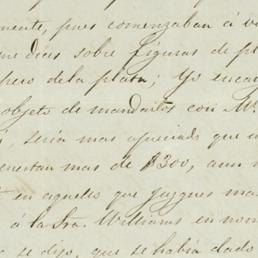 mente, pues comenzaban á v
me días sobre figuras de pl
pero de la plata; Yo enca
objeto de mandarlos con Mr.
seria mas apreciado que u
mentan mas de $300, aun
en aquello que juzgues mas
á la Sra. Williams en nom
se dijo, que se habia dado